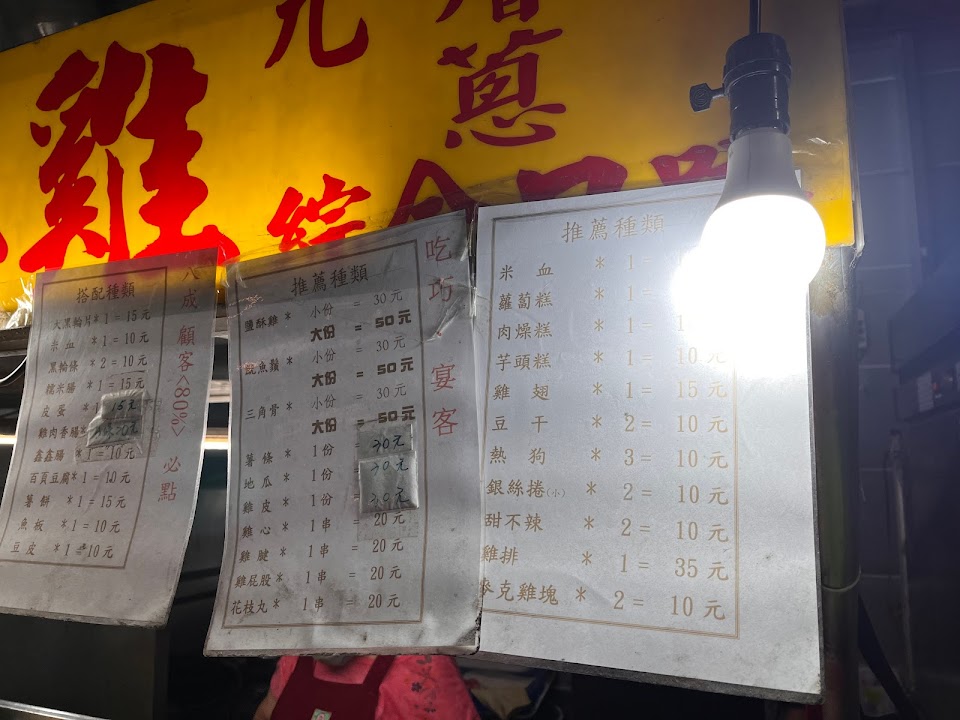 雞
九
蔥
綜合
搭配種類
大黑輪片*1=15元
米血 *1=10元
黑輪條 *2=10元
糯米腸 *1=15元
皮蛋 *1 15元
雞肉香腸* 30元
鑫鑫腸 *1=10元
百頁豆腐*1=10元
薯餅 *1=15元
魚板 *1=10元
豆皮 *1=10元
成 顧客<80%> 必點
推薦種類
鹽酥雞* 小份 = 30元
大份 = 50元
魷魚鬚* 小份 = 30元
大份 = 50元
三角骨* 小份 = 30元
大份 = 50元
薯條* 1份 30元
地瓜* 1份 30元
雞皮* 1份 30元
雞心* 1串 = 20元
雞腱* 1串 = 20元
雞屁股* 1串 = 20元
花枝丸* 1串 = 20元
吃巧 宴客
推薦種類
米血 * 1
蘿蔔糕 * 1
肉燥糕 * 1
芋頭糕 * 1= 10元
雞翅 * 1= 15元
豆干 * 2= 10元
熱狗 * 3= 10元
銀絲捲(小) * 2= 10元
甜不辣 * 2= 10元
雞排 * 1= 35元
麥克雞塊 * 2= 10元